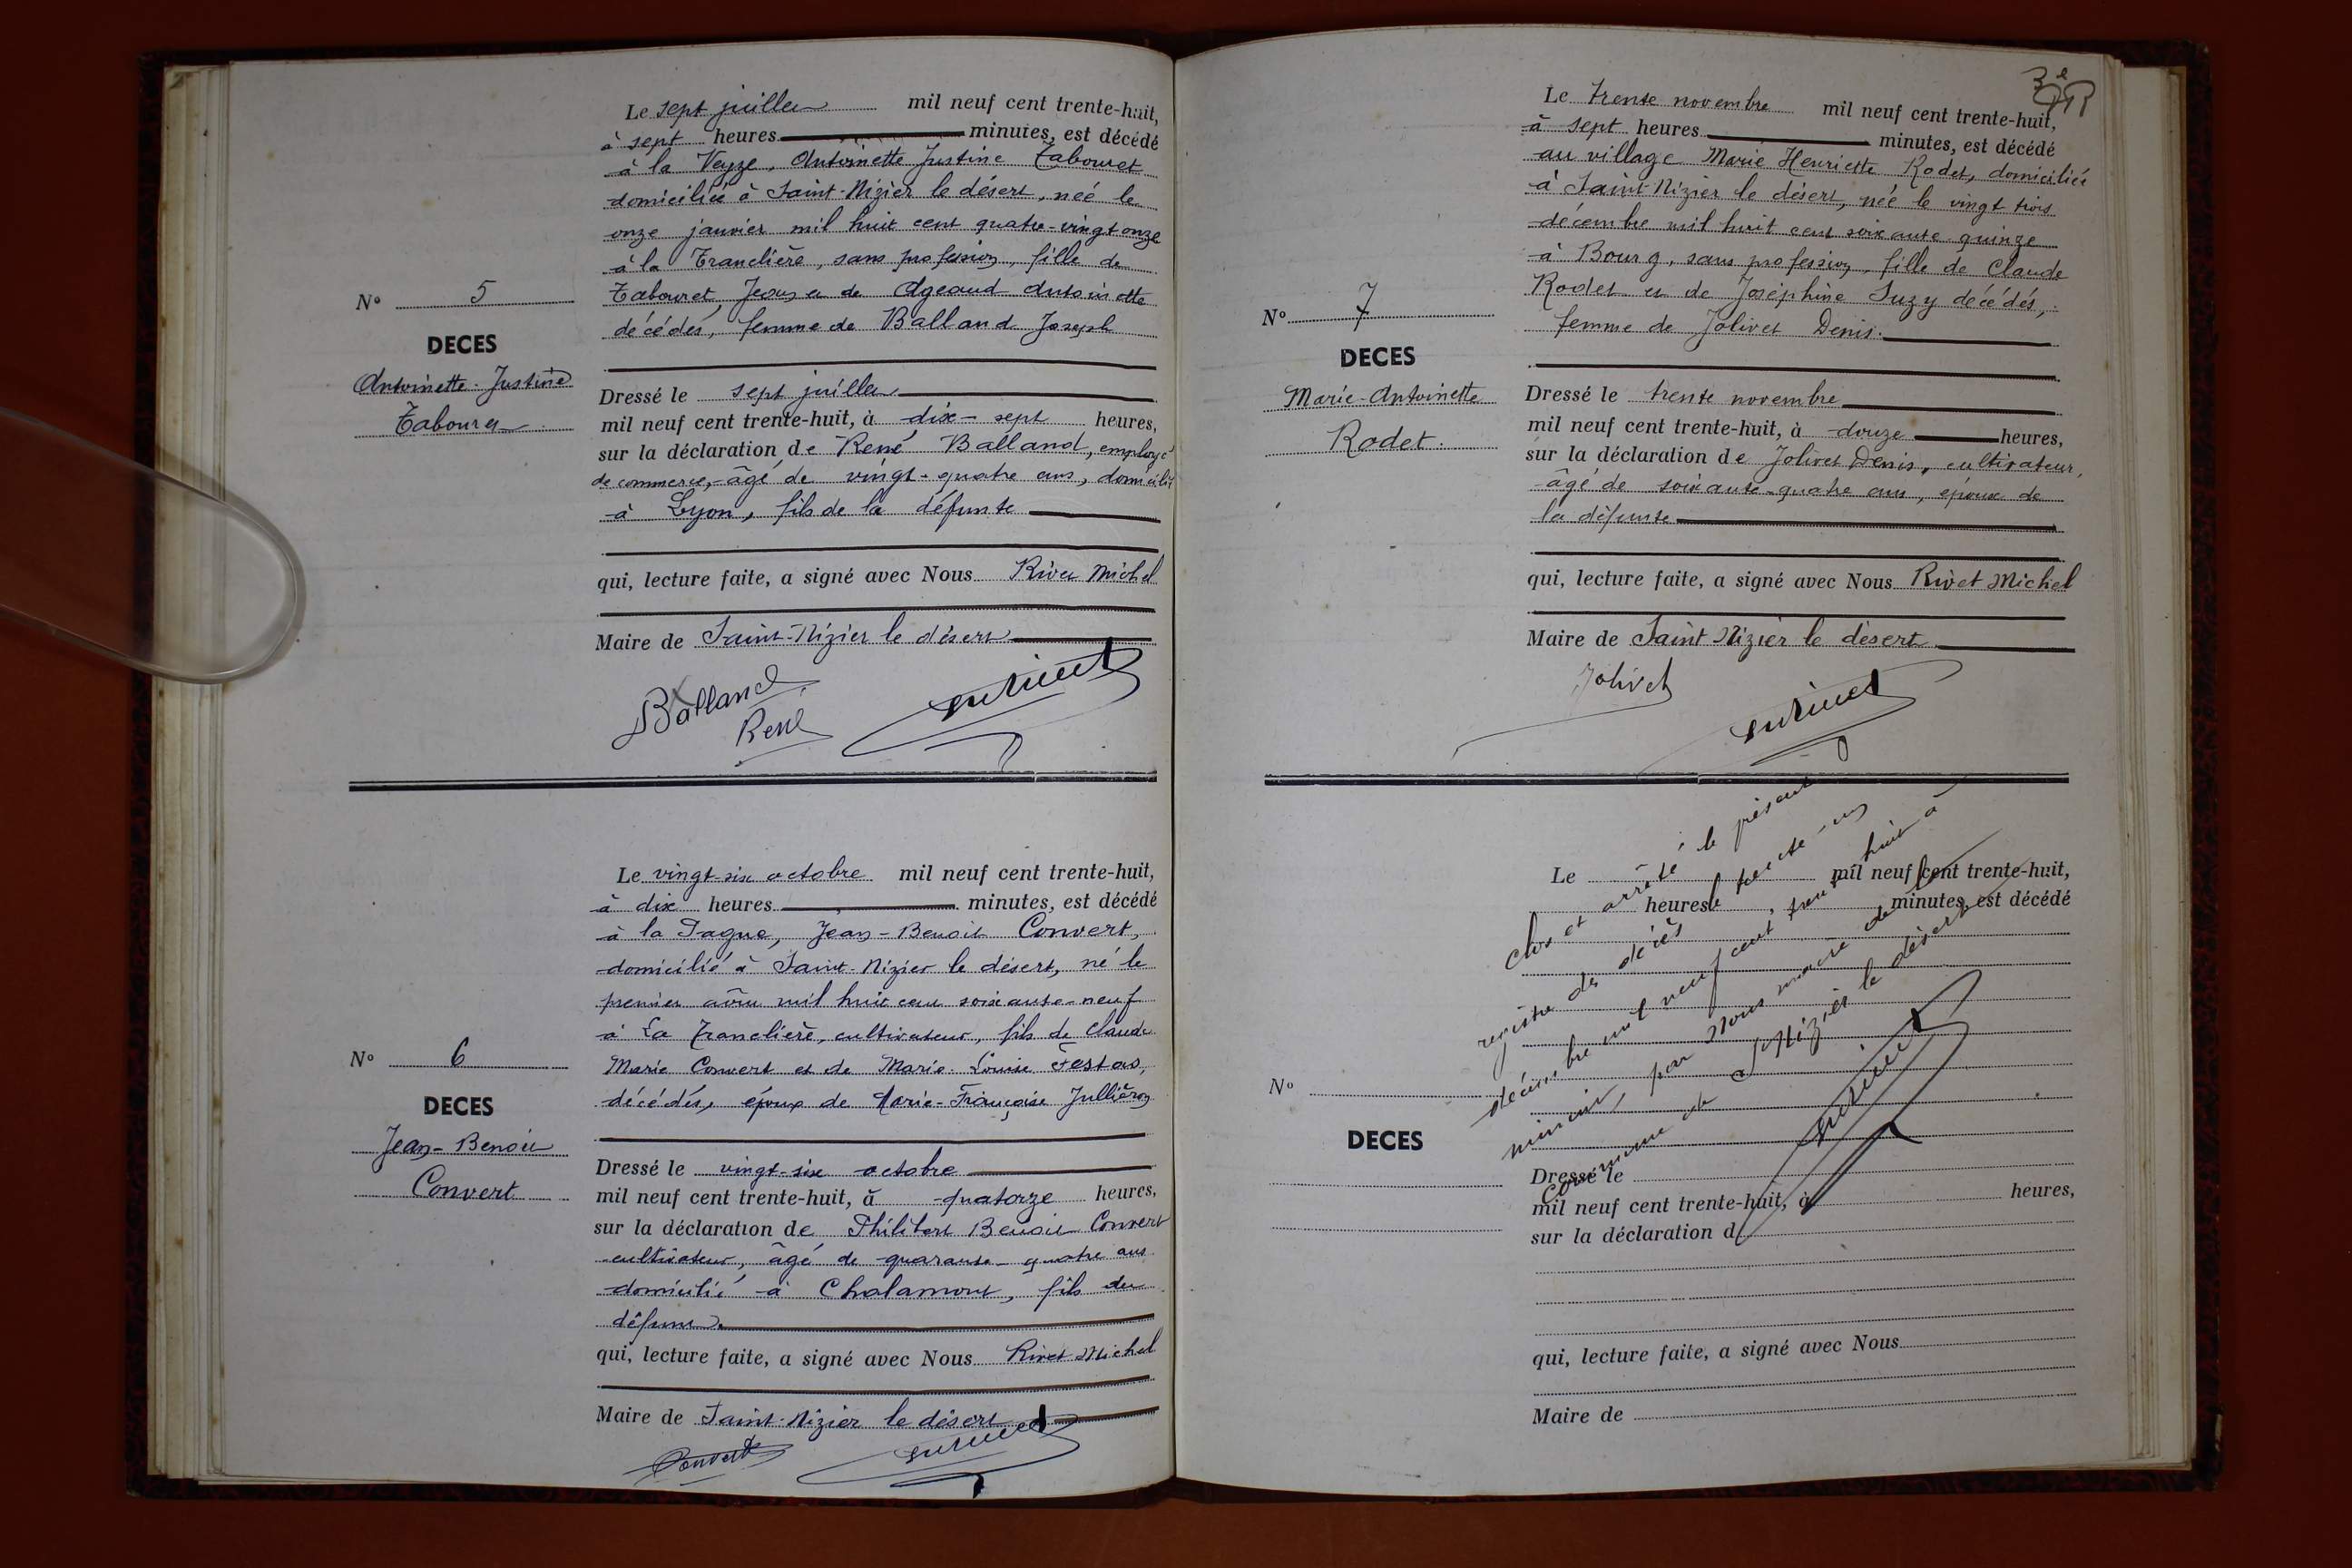 Le sept juillet mil neuf cent trente-huit,
à sept heures minutes, est décédé
à la Veyze, Antoinette Justine Tabouret
domiciliée à Saint-Nizier le désert, née le
onze janvier mil huit cent quatre-vingt onze
à la Tranclière, sans profession, fille de
Tabouret Jean et de Ageaud Antoinette
décédés, femme de Balland Joseph
N° 5
DECES
Antoinette-Justine
Tabouret
Dressé le sept juillet
mil neuf cent trente-huit, à dix-sept heures,
sur la déclaration de René Balland, employé
de commerce, âgé de vingt-quatre ans, domicilié
à Lyon, fils de la défunte
qui, lecture faite, a signé avec Nous Rivet Michel
Maire de Saint-Nizier le désert
Balland
René
Le vingt-six octobre mil neuf cent trente-huit,
à dix heures minutes, est décédé
à la Jean-Benoit Convert,
domicilié à Saint-Nizier le désert, né le
premier août mil huit cent soixante-neuf
à La Tranclière, cultivateur, fils de Claude
Marie Convert et de Marie-Louise Festas,
décédés, époux de Marie-Françoise Jullièron
N° 6
DECES
Jean-Benoit
Convert
Dressé le vingt-six octobre
mil neuf cent trente-huit, à quatorze heures,
sur la déclaration de Philibert Benoit Convert
cultivateur, âgé de quarante-quatre ans
domicilié à Chalamont, fils du
défunt
qui, lecture faite, a signé avec Nous Rivet Michel
Maire de Saint-Nizier le désert
Convert
Le trente novembre mil neuf cent trente-huit,
à sept heures minutes, est décédé
au village Marie Henriette Rodet, domiciliée
à Saint-Nizier le désert, née le vingt trois
décembre mil huit cent soixante quinze
à Bourg, sans profession, fille de Claude
Rodet et de Joséphine Suzy décédés,
femme de Jolivet Denis.
N° 7
DECES
Marie-Antoinette
Rodet.
Dressé le trente novembre
mil neuf cent trente-huit, à douze heures,
sur la déclaration de Jolivet Denis, cultivateur,
âgé de soixante-quatre ans, époux de
la défunte
qui, lecture faite, a signé avec Nous Rivet Michel
Maire de Saint Nizier le désert
Jolivet
clos et arrêté le présent
registre des décès le trente-un
décembre mil neuf cent trente huit à
minuit, par Nous maire de la
commune de St Nizier le désert
Le mil neuf cent trente-huit,
heures minutes, est décédé
N°
DECES
Dressé le
mil neuf cent trente-huit, à heures,
sur la déclaration d
qui, lecture faite, a signé avec Nous
Maire de